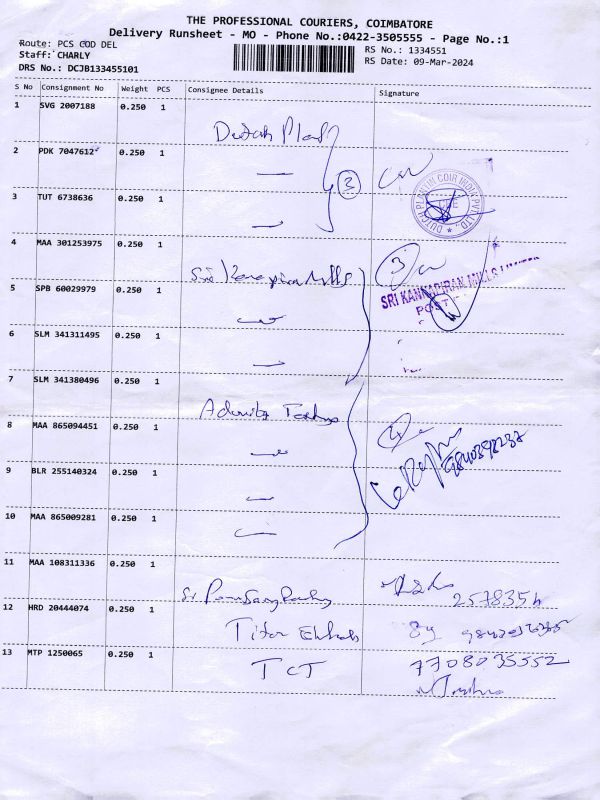 THE PROFESSIONAL COURIERS, COIMBATORE
Delivery Runsheet - MO - Phone No.:0422-3505555 - Page No.:1
Route: PCS COD DEL
RS No.: 1334551
Staff: CHARLY
RS Date: 09-Mar-2024
DRS No.: DCJB133455101
S No Consignment No Weight PCS Consignee Details Signature
1 SVG 2007188 0.250 1
2 PDK 7047612 0.250 1
3
3 TUT 6738636 0.250 1
DUTCH PLANTIN COIR INDIA PVT. LTD.
4 MAA 301253975 0.250 1
Sri Mills
3
5 SPB 60029979 0.250 1
SRI KANNAPIRAN MILLS LIMITED
POST
6 SLM 341311495 0.250 1
7 SLM 341380496 0.250 1
8 MAA 865094451 0.250 1
4
9840398237
9 BLR 255140324 0.250 1
10 MAA 865009281 0.250 1
11 MAA 108311336 0.250 1
12 HRD 20444074 0.250 1
Titan
13 MTP 1250065 0.250 1
TCT
7708035552